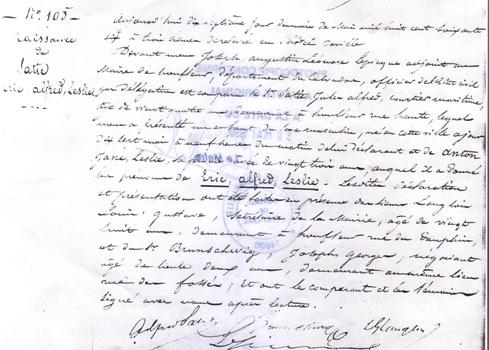 N° 105
Naissance
de
Satie
Eric, alfred, Leslie
Aujourd'hui dix septième jour du mois de Mai mil huit cent soixante
six à huit heures
Devant nous Joseph, augustin Léonore adjoint au
Maire de honfleur, département du Calvados, officier de l'état civil
par délégation est comparu le Sr Satie Jules alfred, courtier maritime,
âgé de vingt quatre ans, demeurant à honfleur rue haute, lequel
nous a présenté un enfant du sexe masculin, né en cette ville ce jour
dix sept mai à neuf heures du matin de lui déclarant et de anton
Jane, Leslie, âgée de vingt trois ans, auquel il a donné
les prénoms de Eric, alfred, Leslie. Lesdites déclaration
et présentation ont été faites en présence des sieurs Langlois
Louis gustave, secrétaire de la Mairie, âgé de vingt
huit ans, demeurant à honfleur rue du Dauphin,
et du Sr Brunschwig, Joseph, george, négociant
âgé de trente deux ans, demeurant au même lieu
rue des fossés; et ont le comparant et les témoins
signé avec nous après lecture.
Alfred Satie Langlois